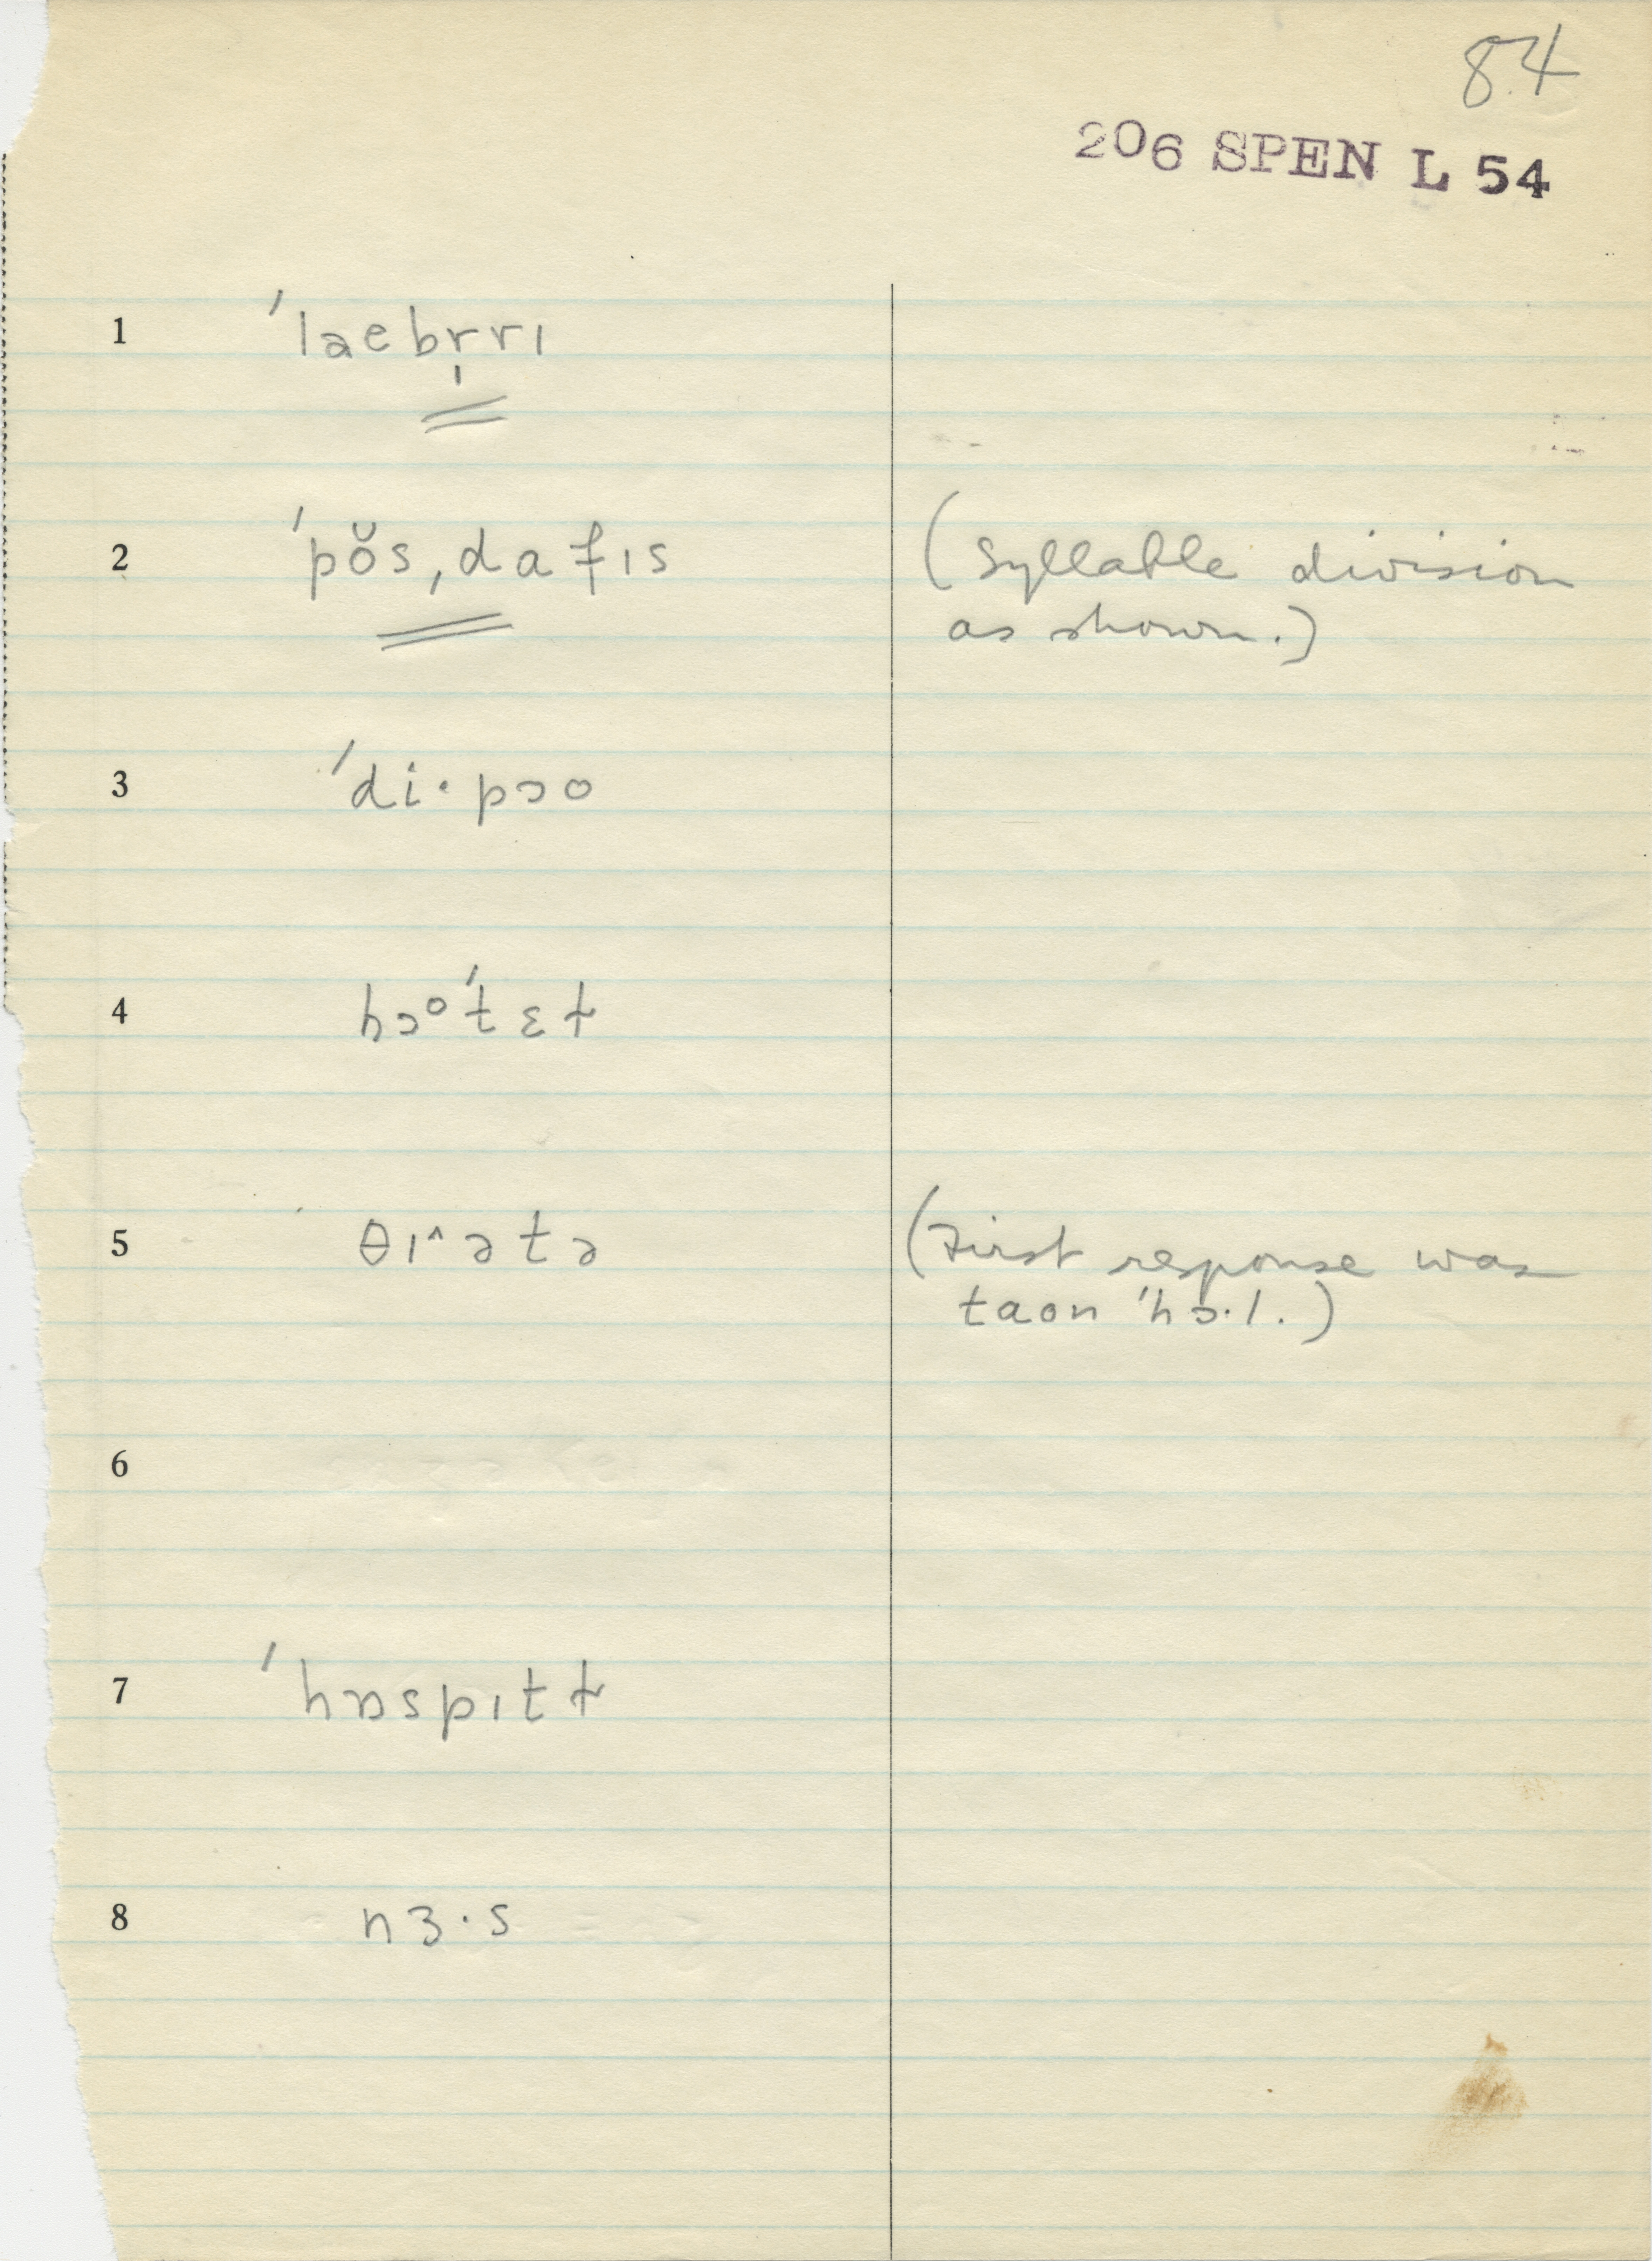 84
206 SPEN L 54
1 ˈlaebr̩rɪ
2 ˈpŏsˌdafɪs (Syllable division
as shown.)
3 ˈdi·pɔo
4 hɔᵒˈtɛɫ
5 θɪ^ətə (First response was
taon ˈhɔ·l.)
6
7 ˈhɒspɪtɫ
8 nɜ·s